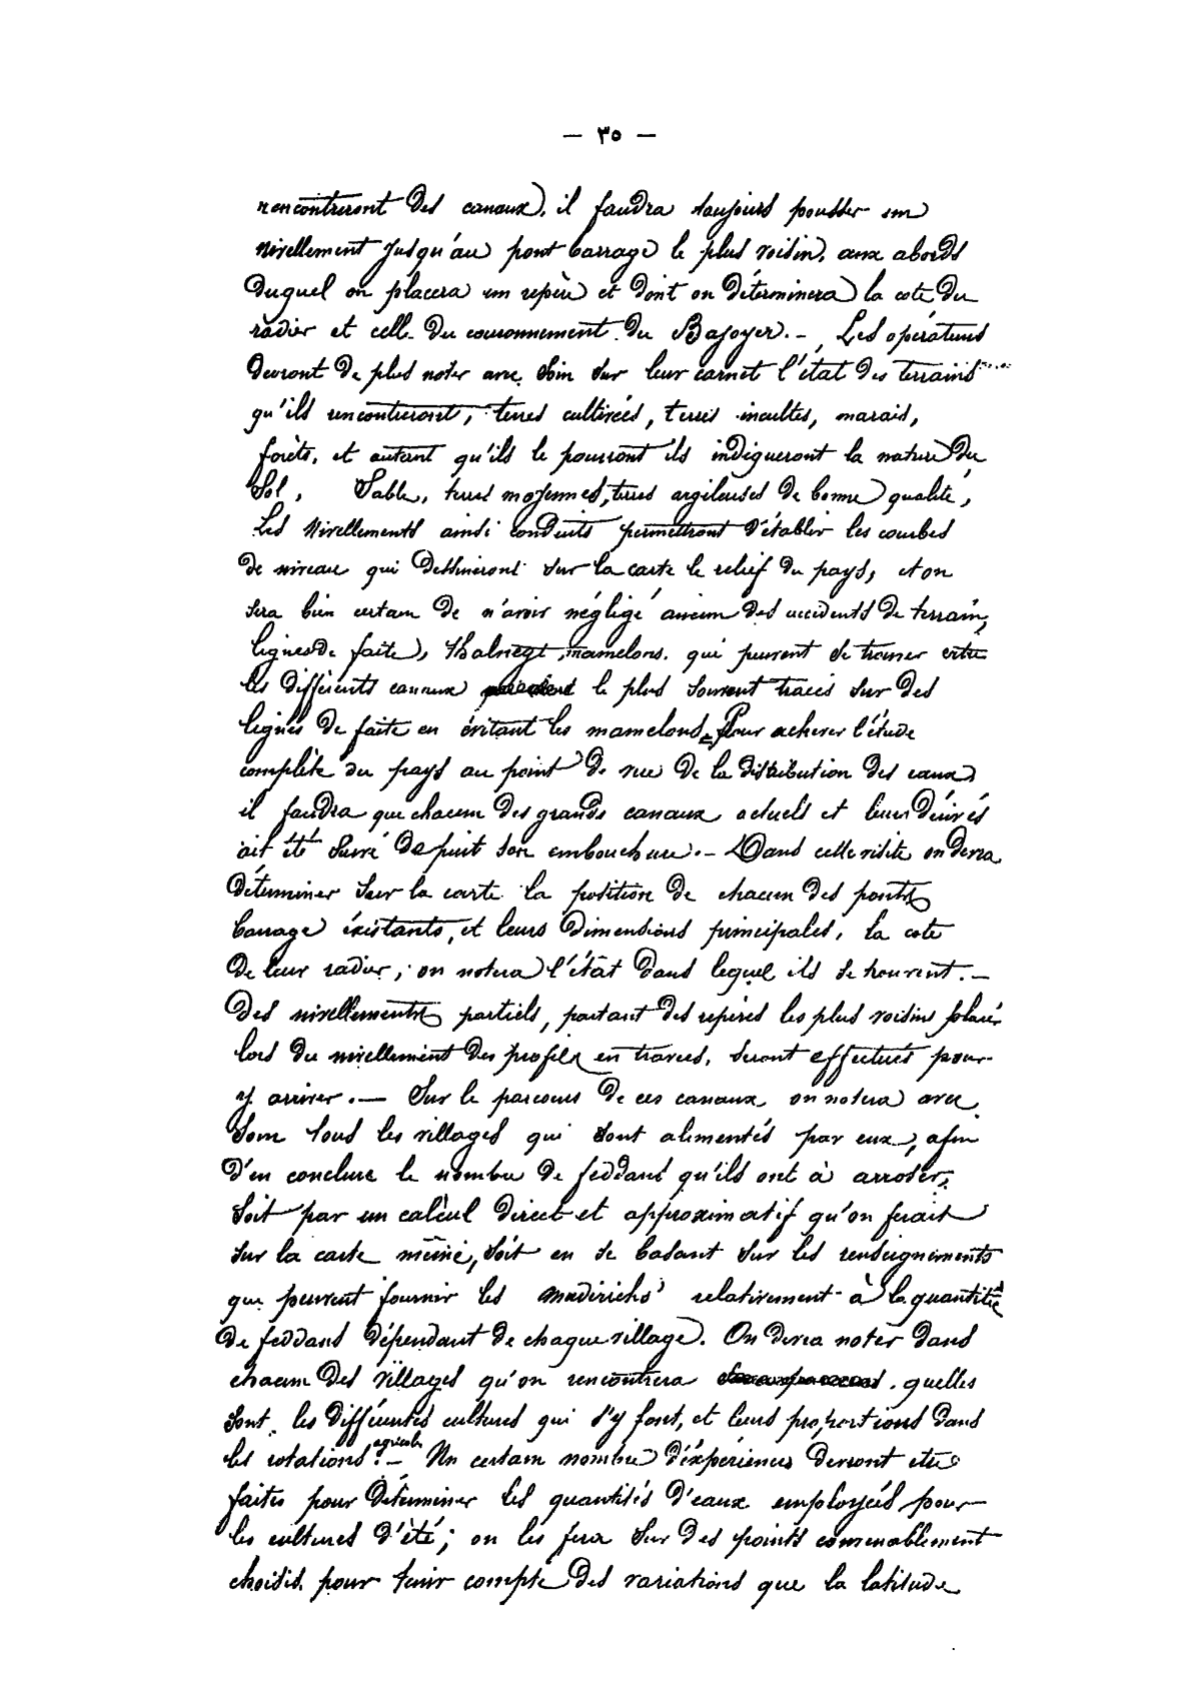 — ٣٥ —
rencontreront des canaux, il faudra toujours pousser un
nivellement jusqu'au pont barrage le plus voisin, aux abords
duquel on placera un repère et dont on déterminera la cote du
radier et celle du couronnement du Bajoyer. — Les opérateurs
devront de plus noter avec soin sur leur carnet l'état des terrains
qu'ils rencontreront, terres cultivées, terres incultes, marais,
forêts, et autant qu'ils le pourront ils indiqueront la nature du
Sol, Sable, terres moyennes, terres argileuses de bonne qualité,
Les Nivellements ainsi conduits permettront d'établir les courbes
de niveau qui dessineront sur la carte le relief du pays, et on
sera bien certain de n'avoir négligé aucun des accidents de terrain,
lignes de faîte, Thalwegt, mamelons, qui peuvent se trouver entre
les différents canaux le plus souvent tracés sur des
lignes de faîte en évitant les mamelons. — Pour achever l'étude
complète du pays au point de vue de la distribution des eaux
il faudra que chacun des grands canaux actuels et leurs dérivés
ait été suivi depuis son embouchure. — Dans cette visite on devra
déterminer sur la carte la position de chacun des ponts
barrage éxistants, et leurs dimensions principales, la cote
de leur radier, on notera l'état dans lequel ils se trouvent. —
Des nivellements partiels, partant des repères les plus voisins placés
lors du nivellement des profils en travers, seront effectués pour
y arriver. — Sur le parcours de ces canaux on notera avec
soin tous les villages qui sont alimentés par eux, afin
d'en conclure le nombre de feddans qu'ils ont à arroser,
soit par un calcul direct et approximatif qu'on ferait
sur la carte même, soit en se basant sur les renseignements
que peuvent fournir les mudirichs relativement à la quantité
de feddans dépendant de chaque village. On devra noter dans
chacun des villages qu'on rencontrera quelles
sont les différentes cultures qui s'y font, et leurs proportions dans
les rotations agricoles. — Un certain nombre d'expériences devront être
faites pour déterminer les quantités d'eaux employées pour
les cultures d'été; on les fera sur des points convenablement
choisis pour tenir compte des variations que la latitude